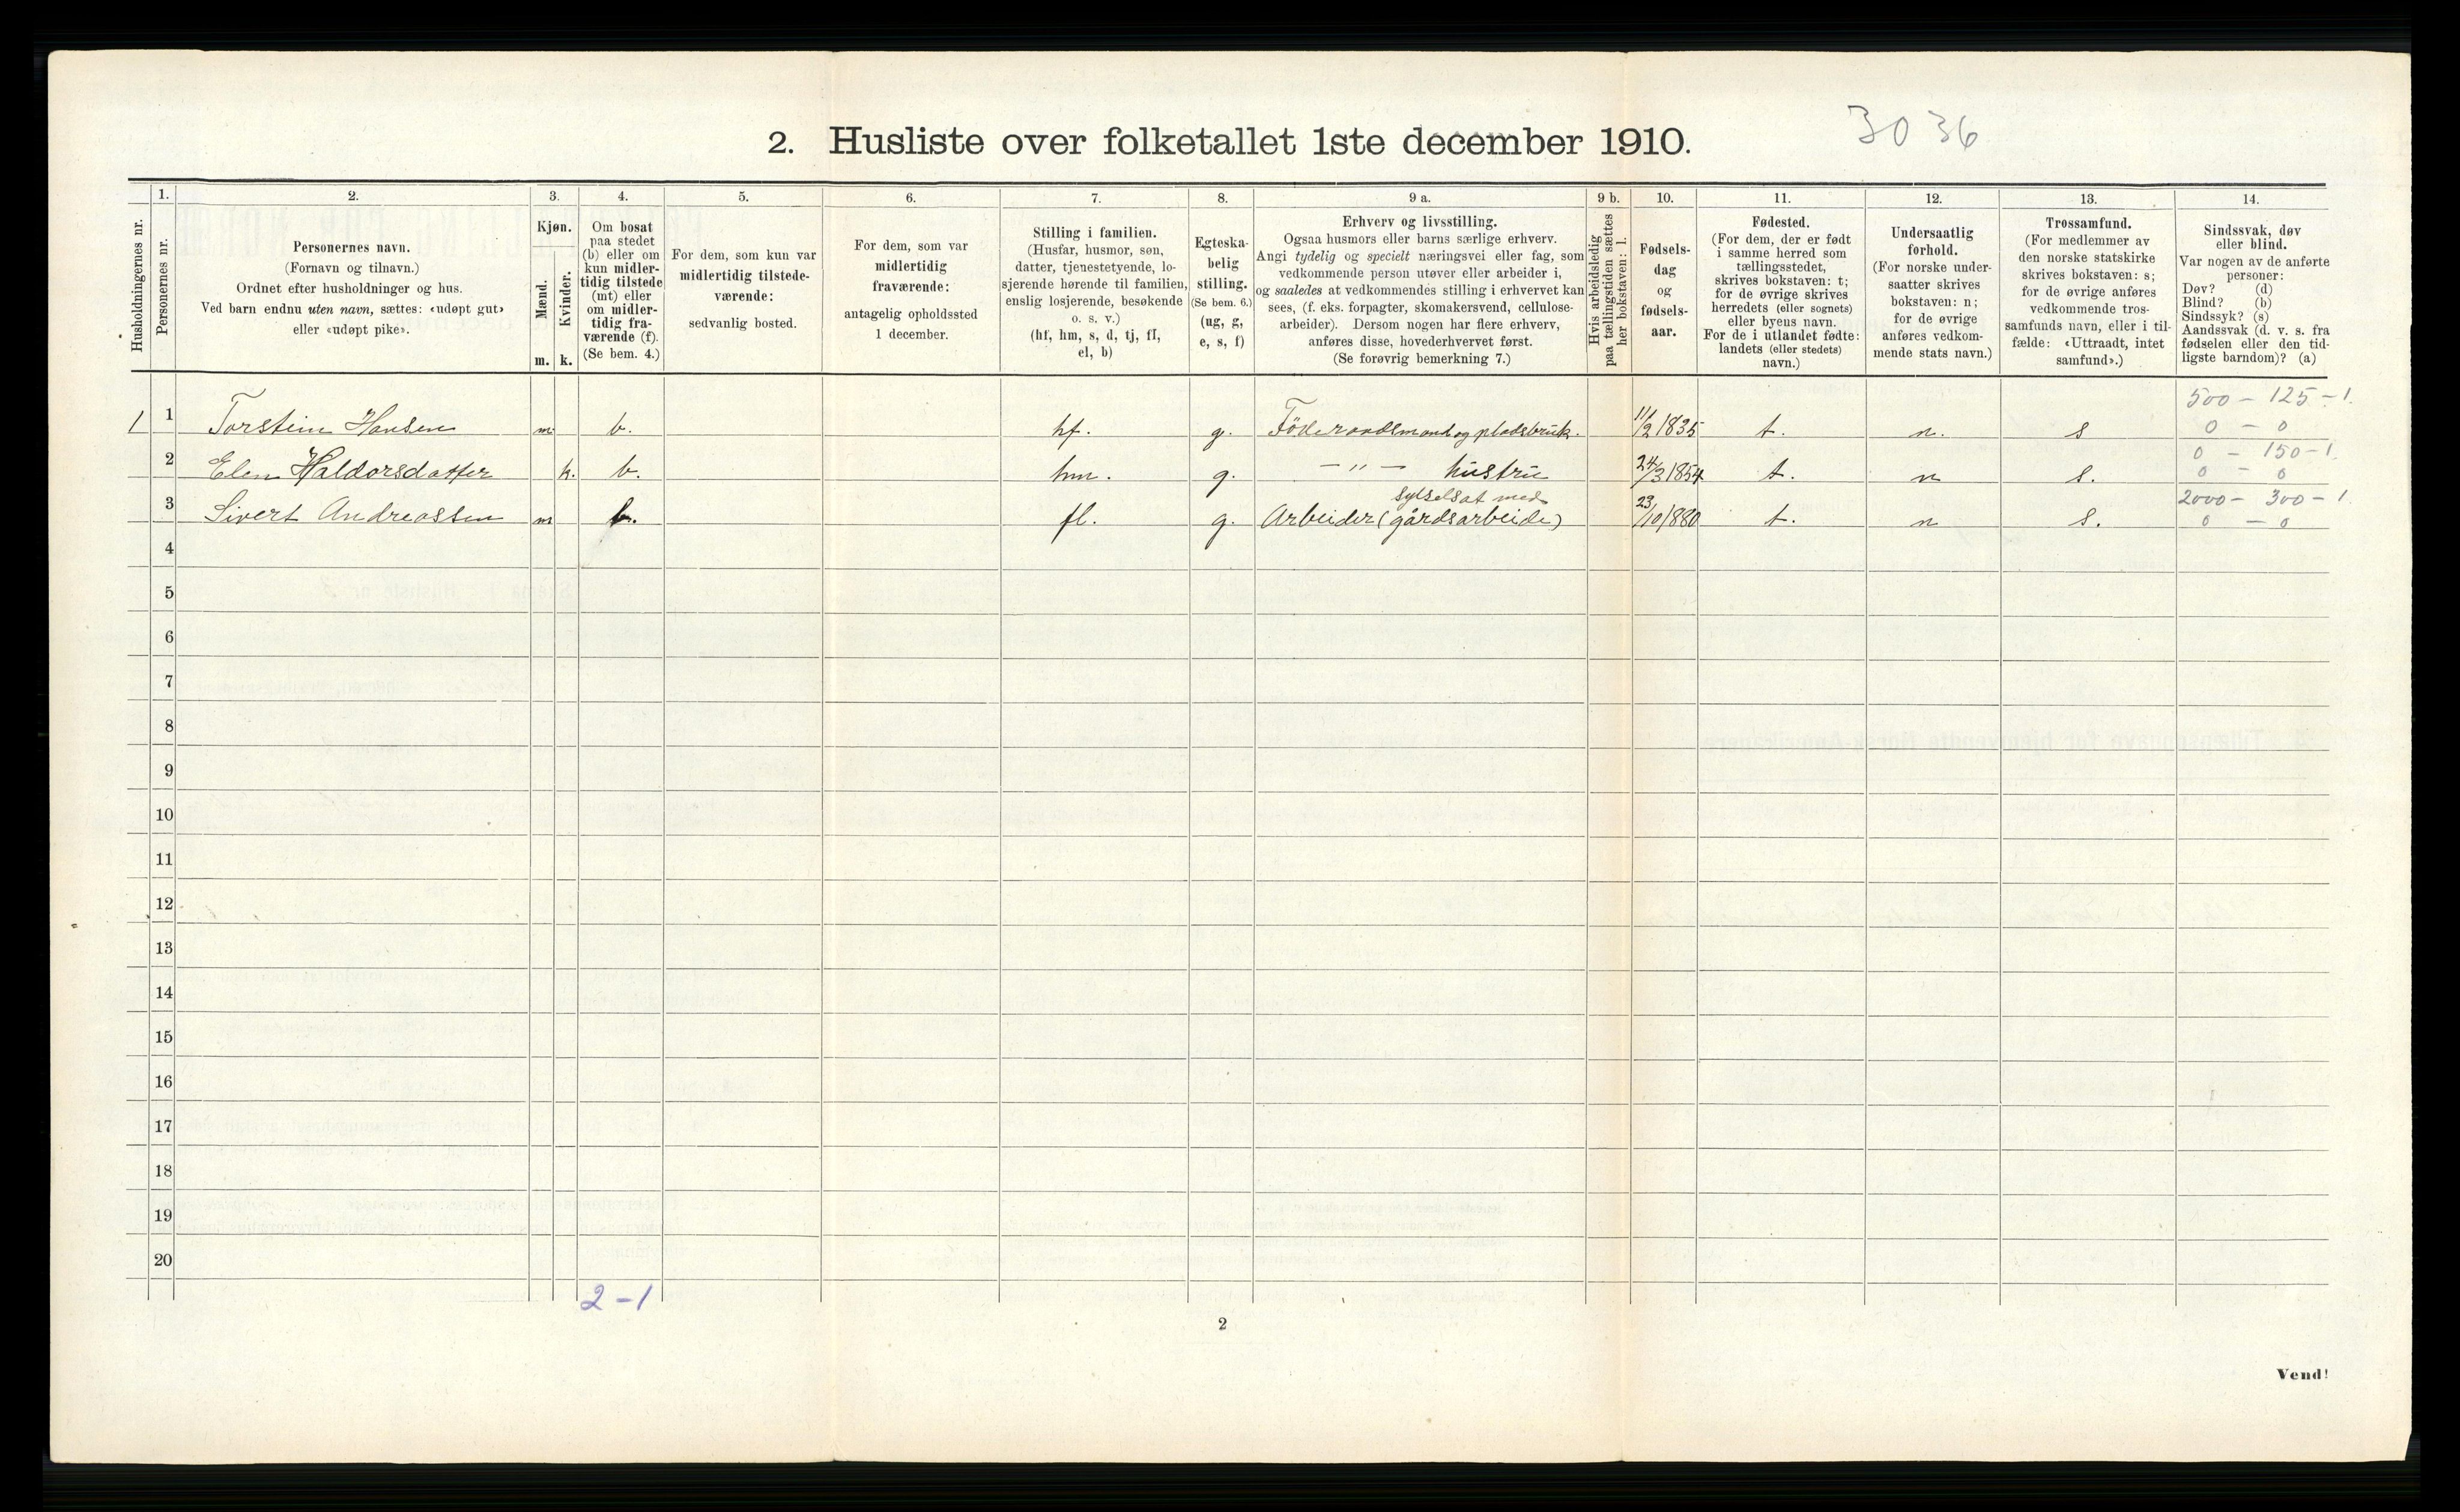 2. Husliste over folketallet 1ste december 1910.
3036
Husholdningernes nr.
1.
Personernes nr.
2.
Personernes navn.
(Fornavn og tilnavn.)
Ordnet efter husholdninger og hus.
Ved barn endnu uten navn, sættes: «udøpt gut»
eller «udøpt pike».
3.
Kjøn.
Mænd.
Kvinder.
m. k.
4.
Om bosat
paa stedet
(b) eller om
kun midler-
tidig tilstede
(mt) eller
om midler-
tidig fra-
værende (f).
(Se bem. 4.)
5.
For dem, som kun var
midlertidig tilstede-
værende:
sedvanlig bosted.
6.
For dem, som var
midlertidig
fraværende:
antagelig opholdssted
1 december.
7.
Stilling i familien.
(Husfar, husmor, søn,
datter, tjenestetyende, lo-
sjerende hørende til familien,
enslig losjerende, besøkende
o. s. v.)
(hf, hm, s, d, tj, fl,
el, b)
8.
Egteska-
belig
stilling.
(Se bem. 6.)
(ug, g,
e, s, f)
9 a.
Erhverv og livsstilling.
Ogsaa husmors eller barns særlige erhverv.
Angi tydelig og specielt næringsvei eller fag, som
vedkommende person utøver eller arbeider i,
og saaledes at vedkommendes stilling i erhvervet kan
sees, (f. eks. forpagter, skomakersvend, cellulose-
arbeider). Dersom nogen har flere erhverv,
anføres disse, hovederhvervet først.
(Se forøvrig bemerkning 7.)
9 b.
Hvis arbeidsledig
paa tællingstiden sættes
her bokstaven: l.
10.
Fødsels-
dag
og
fødsels-
aar.
11.
Fødested.
(For dem, der er født
i samme herred som
tællingsstedet,
skrives bokstaven: t;
for de øvrige skrives
herredets (eller sognets)
eller byens navn.
For de i utlandet fødte:
landets (eller stedets)
navn.)
12.
Undersaatlig
forhold.
(For norske under-
saatter skrives
bokstaven: n;
for de øvrige
anføres vedkom-
mende stats navn.)
13.
Trossamfund.
(For medlemmer av
den norske statskirke
skrives bokstaven: s;
for de øvrige anføres
vedkommende tros-
samfunds navn, eller i til-
fælde: «Uttraadt, intet
samfund».)
14.
Sindssvak, døv
eller blind.
Var nogen av de anførte
personer:
Døv? (d)
Blind? (b)
Sindssyk? (s)
Aandssvak (d. v. s. fra
fødselen eller den tid-
ligste barndom)? (a)
500 - 125 - 1.
1 1 Torstein Hansen m b. hf. g. Föderaadsmand og pladsbruk. 11/2 1835 t. n. s 0 - 0
0 - 150 - 1.
2 Elen Haldorsdatter k. b. hm. g. - " - hustru 24/3 1854 t. n s. 0 - 0
sysselsat med
2000 - 300 - 1
3 Sivert Andreassen m b. fl. g. Arbeider (gårdsarbeide) 23/10 1880 t. n s. 0 - 0
4
5
6
7
8
9
10
11
12
13
14
15
16
17
18
19
20
2 - 1
2
Vend!